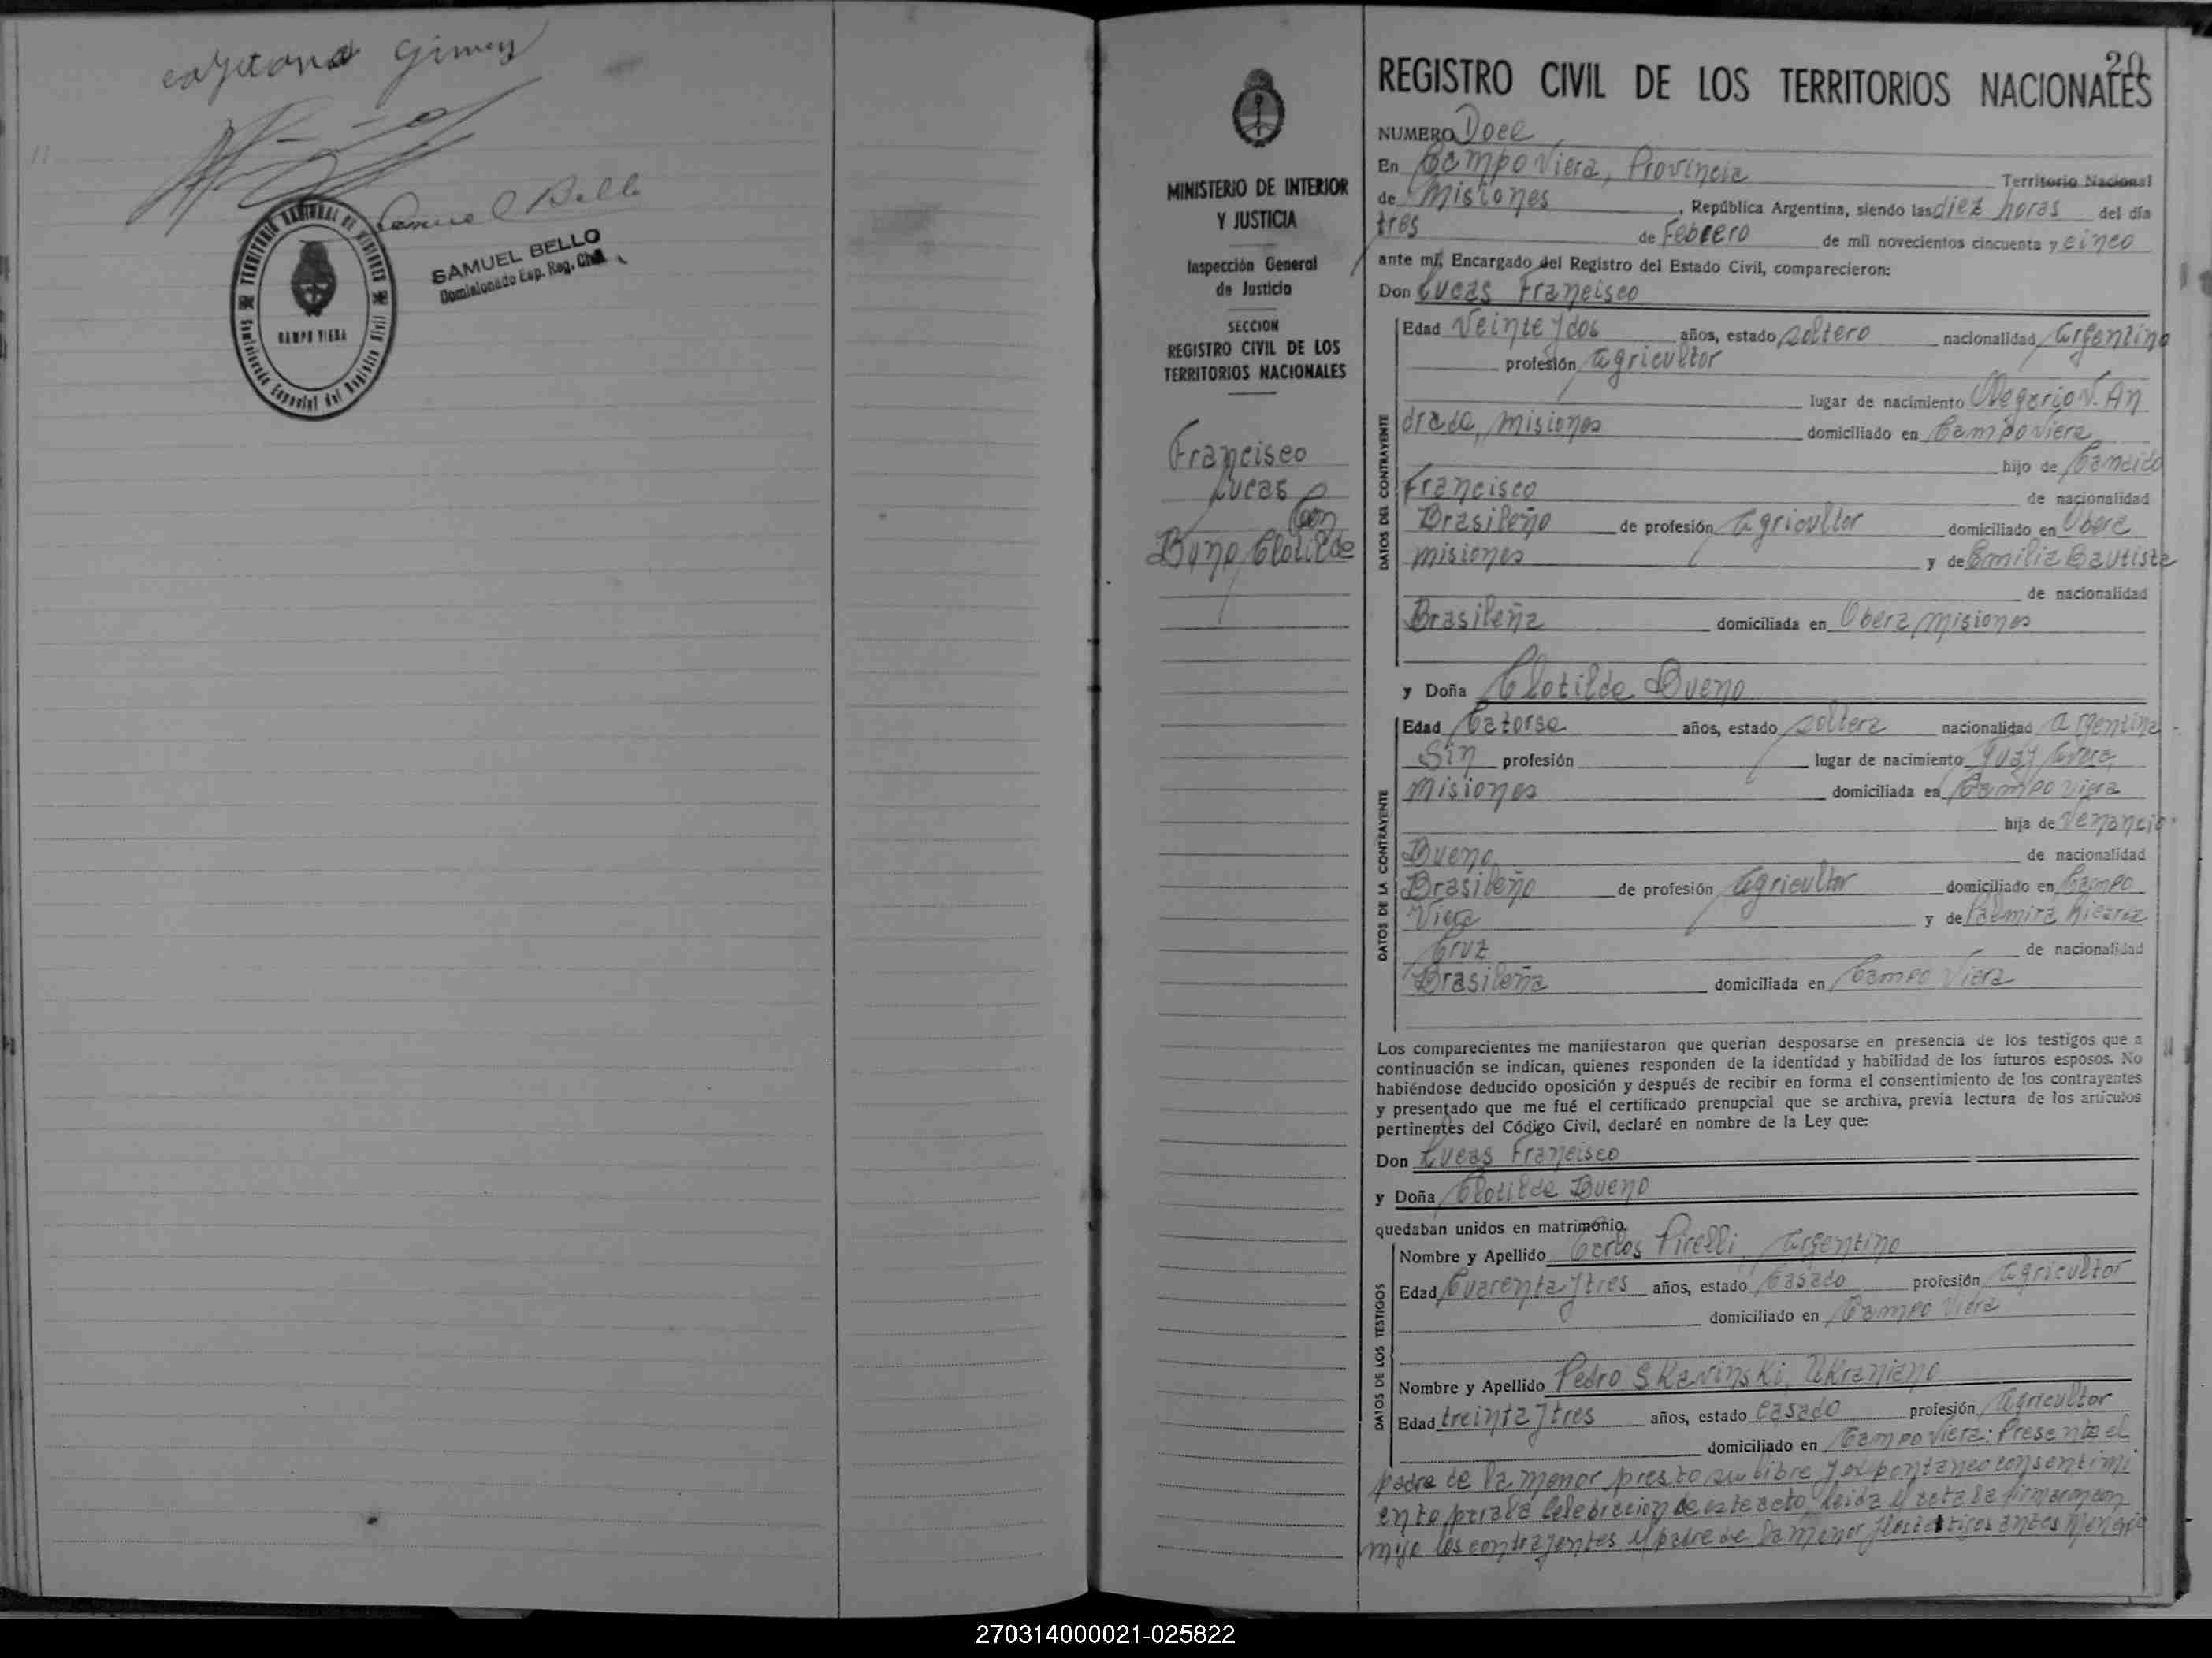 cayetano Gimes
Samuel Bello
SAMUEL BELLO
Comisionado Esp. Reg. Civil
TERRITORIO NACIONAL DE MISIONES
CAMPO VIERA
Comisionado Especial del Registro Civil
20
REGISTRO CIVIL DE LOS TERRITORIOS NACIONALES
MINISTERIO DE INTERIOR
Y JUSTICIA
Inspección General
de Justicia
SECCION
REGISTRO CIVIL DE LOS
TERRITORIOS NACIONALES
Francisco
Lucas
Con
Buno Clotilde
NUMERO Doce
En Campo Viera, Provincia Territorio Nacional
de Misiones, República Argentina, siendo las diez horas del día
tres de Febrero de mil novecientos cincuenta y cinco
ante mí, Encargado del Registro del Estado Civil, comparecieron:
Don Lucas Francisco
DATOS DEL CONTRAYENTE
Edad Veinte y dos años, estado soltero nacionalidad Argentino
profesión agricultor
lugar de nacimiento Olegario V. An
drade, misiones domiciliado en Campo Viera
hijo de Candido
Francisco de nacionalidad
Brasileño de profesión agricultor domiciliado en Obera
misiones y de Emilia Bautista
de nacionalidad
Brasileña domiciliada en Obera, misiones
y Doña Clotilde Bueno
DATOS DE LA CONTRAYENTE
Edad Catorse años, estado soltera nacionalidad argentina
Sin profesión lugar de nacimiento
Misiones domiciliada en Campo Viera
hija de Venancio
Bueno de nacionalidad
Brasileño de profesión agricultor domiciliado en Campo
Viera y de Palmira
Cruz de nacionalidad
Brasileña domiciliada en Campo Viera
Los comparecientes me manifestaron que querían desposarse en presencia de los testigos que a
continuación se indican, quienes responden de la identidad y habilidad de los futuros esposos. No
habiéndose deducido oposición y después de recibir en forma el consentimiento de los contrayentes
y presentado que me fué el certificado prenupcial que se archiva, previa lectura de los artículos
pertinentes del Código Civil, declaré en nombre de la Ley que:
Don Lucas Francisco
y Doña Clotilde Bueno
quedaban unidos en matrimonio.
DATOS DE LOS TESTIGOS
Nombre y Apellido Carlos Pirelli, Argentino
Edad Cuarenta y tres años, estado Casado profesión agricultor
domiciliado en Campo Viera
Nombre y Apellido Pedro SKavinsKi, UKraniano
Edad treinta y tres años, estado casado profesión agricultor
domiciliado en Campo Viera: Presente el
padre de la menor presto su libre y expontaneo consentimi
ento para la celebracion de este acto, leida el acta la firmaron con
migo los contrayentes el padre de la menor y los testigos antes
270314000021-025822